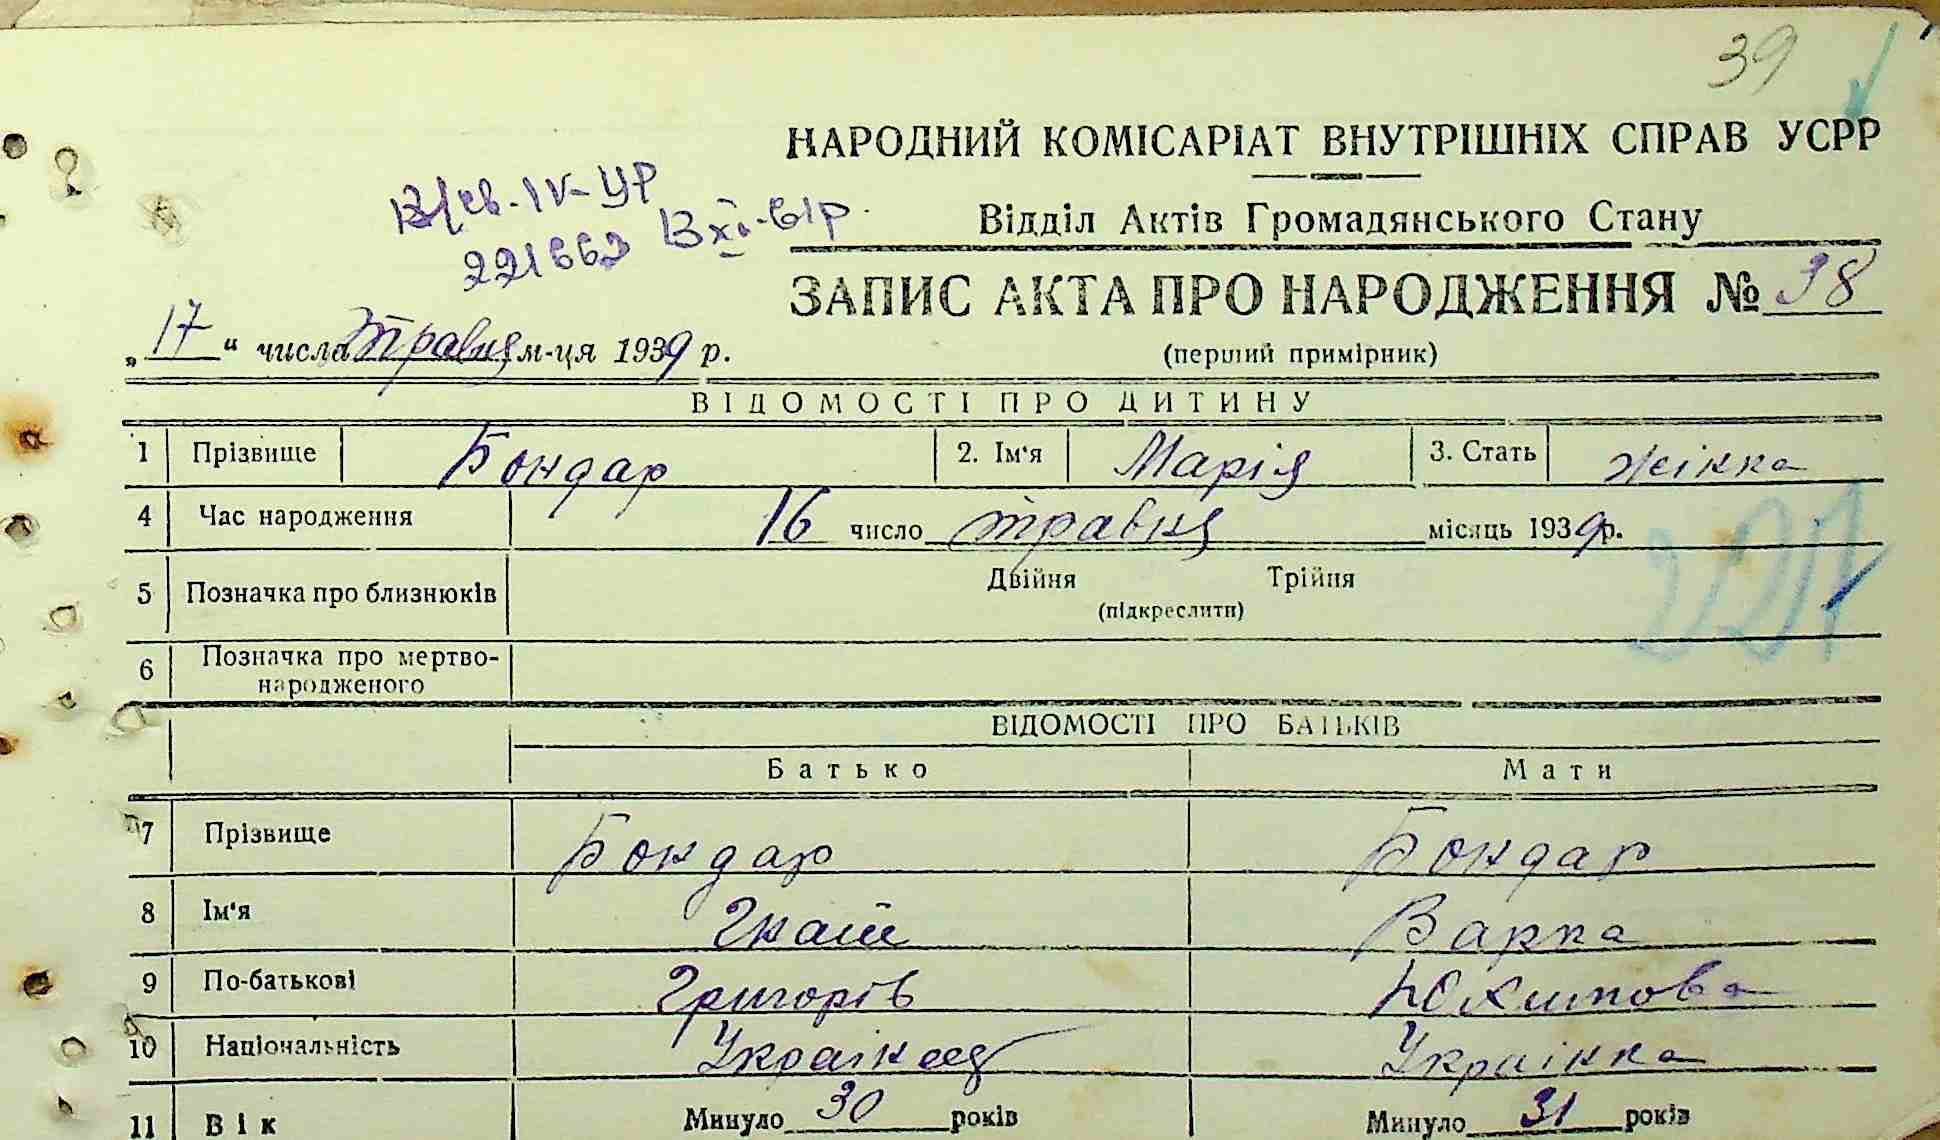 39
НАРОДНИЙ КОМІСАРІАТ ВНУТРІШНІХ СПРАВ УСРР
Відділ Актів Громадянського Стану
221662
ЗАПИС АКТА ПРО НАРОДЖЕННЯ № 38
(перший примірник)
„ 17 “ числа травня м-ця 1939 р.
ВІДОМОСТІ ПРО ДИТИНУ
1 Прізвище Бондар 2. Ім'я Марія 3. Стать жінка
4 Час народження 16 число травня місяць 1939 р.
5 Позначка про близнюків Двійня Трійня
(підкреслити)
221
6 Позначка про мертво-
народженого
ВІДОМОСТІ ПРО БАТЬКІВ
Батько Мати
7 Прізвище Бондар Бондар
8 Ім'я Гнат Варка
9 По-батькові Григорів Юхимова
10 Національність Українець Українка
11 Вік Минуло 30 років Минуло 31 років